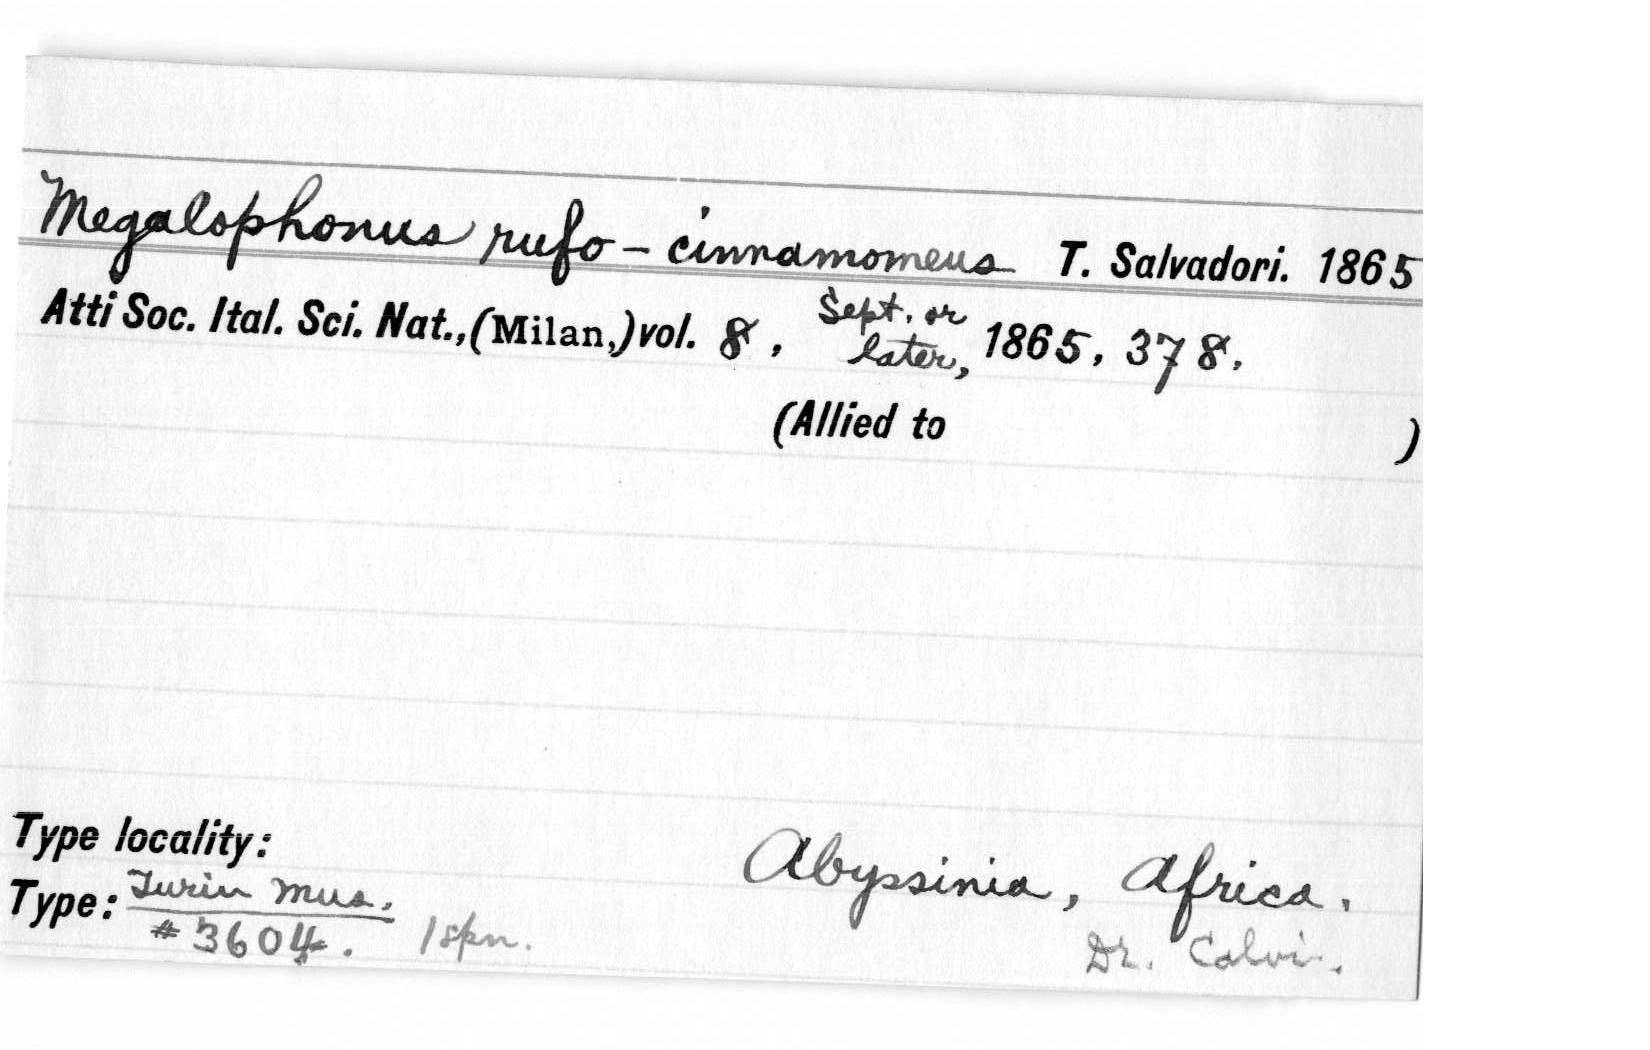 Megalophonus rufo-cinnamomeus T. Salvadori. 1865
Atti Soc. Ital. Sci. Nat., (Milan,) vol. 8, Sept. or later, 1865, 378.
(Allied to )
Type locality: Abyssinia, Africa.
Type: Turin Mus. Dr. Calvi.
#3604. 1 spn.